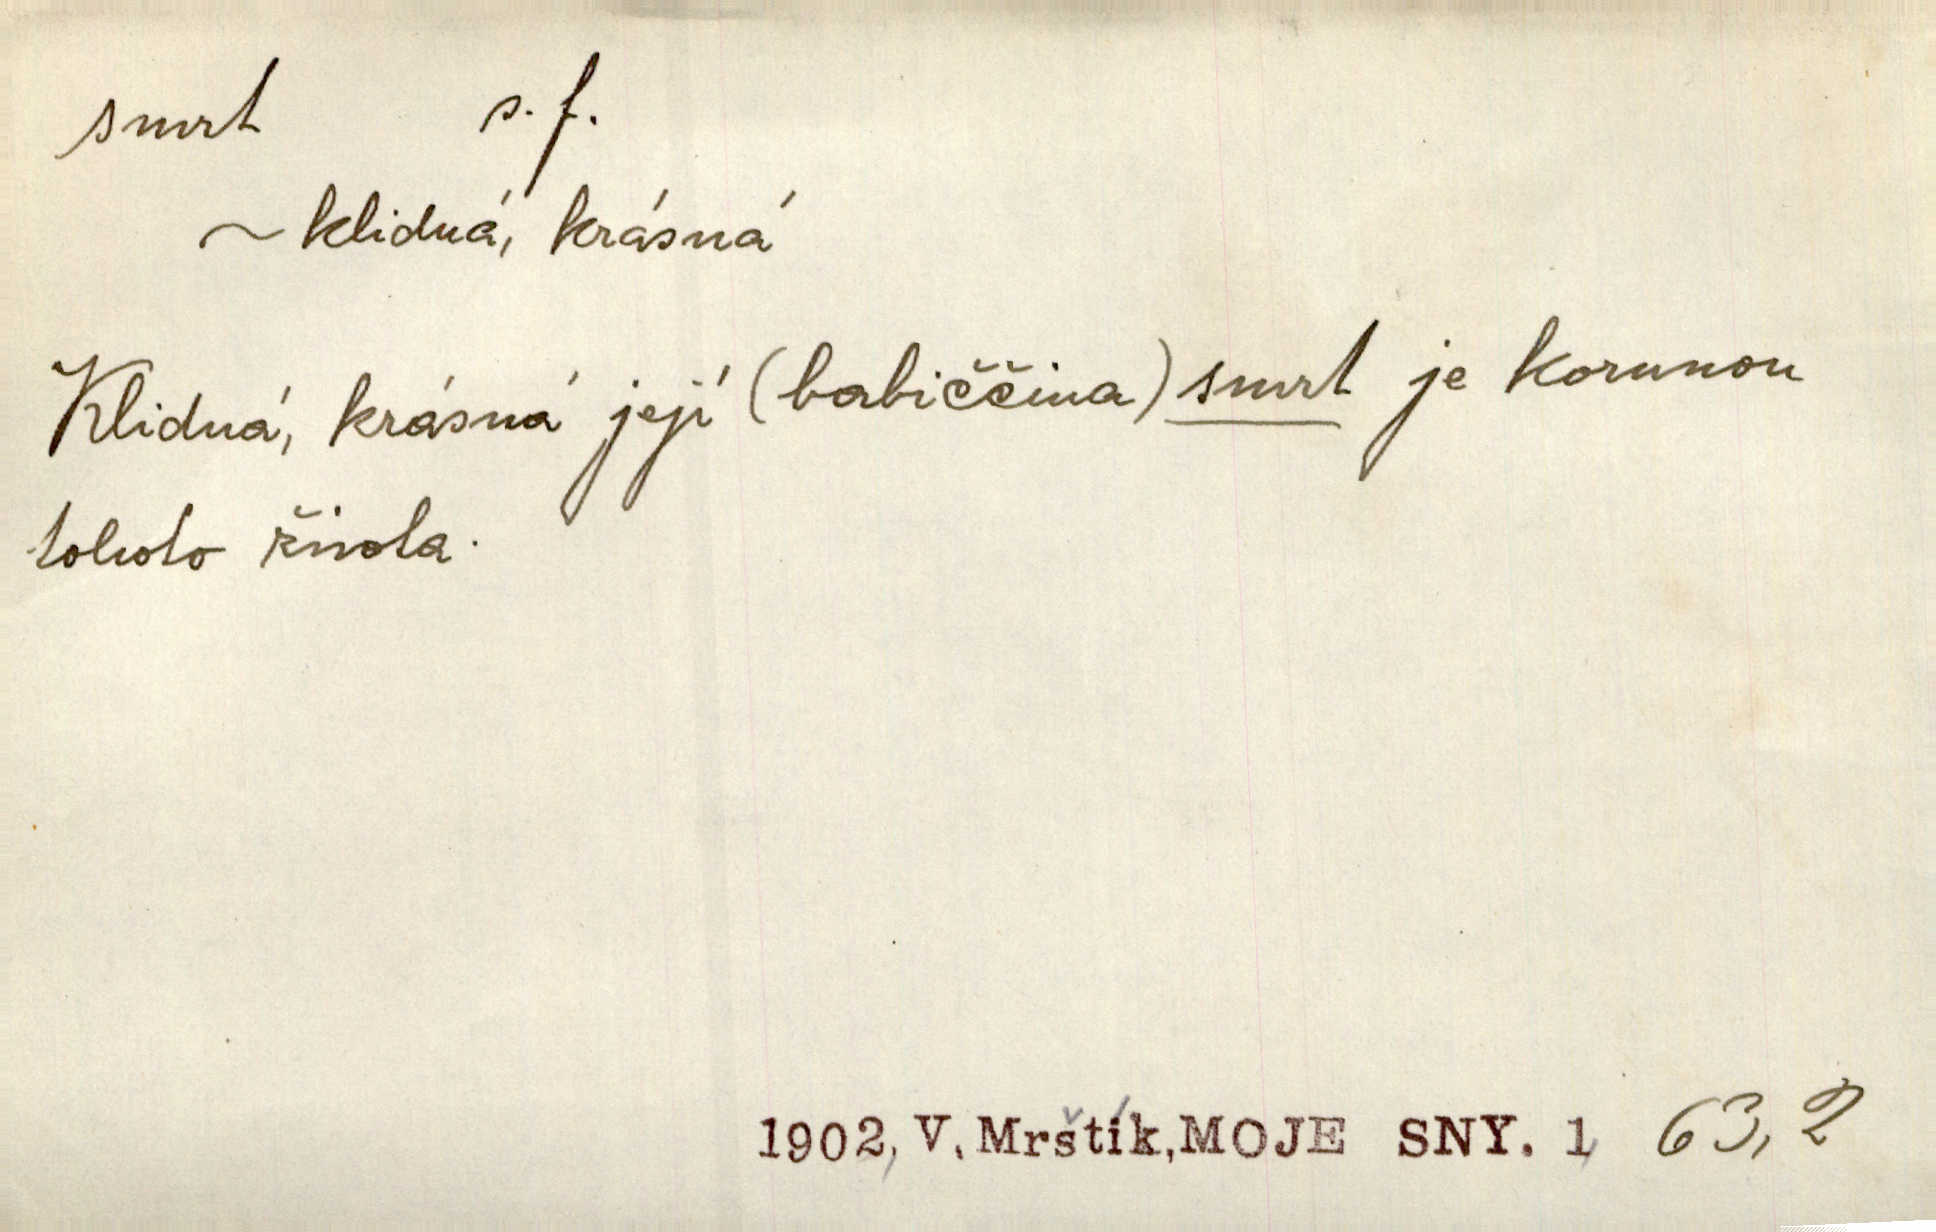 smrt s. f.
~ klidná, krásná
Klidná, krásná její (babiččina) smrt je korunou
tohoto života.
1902, V. Mrštík, MOJE SNY. 1, 63, 2